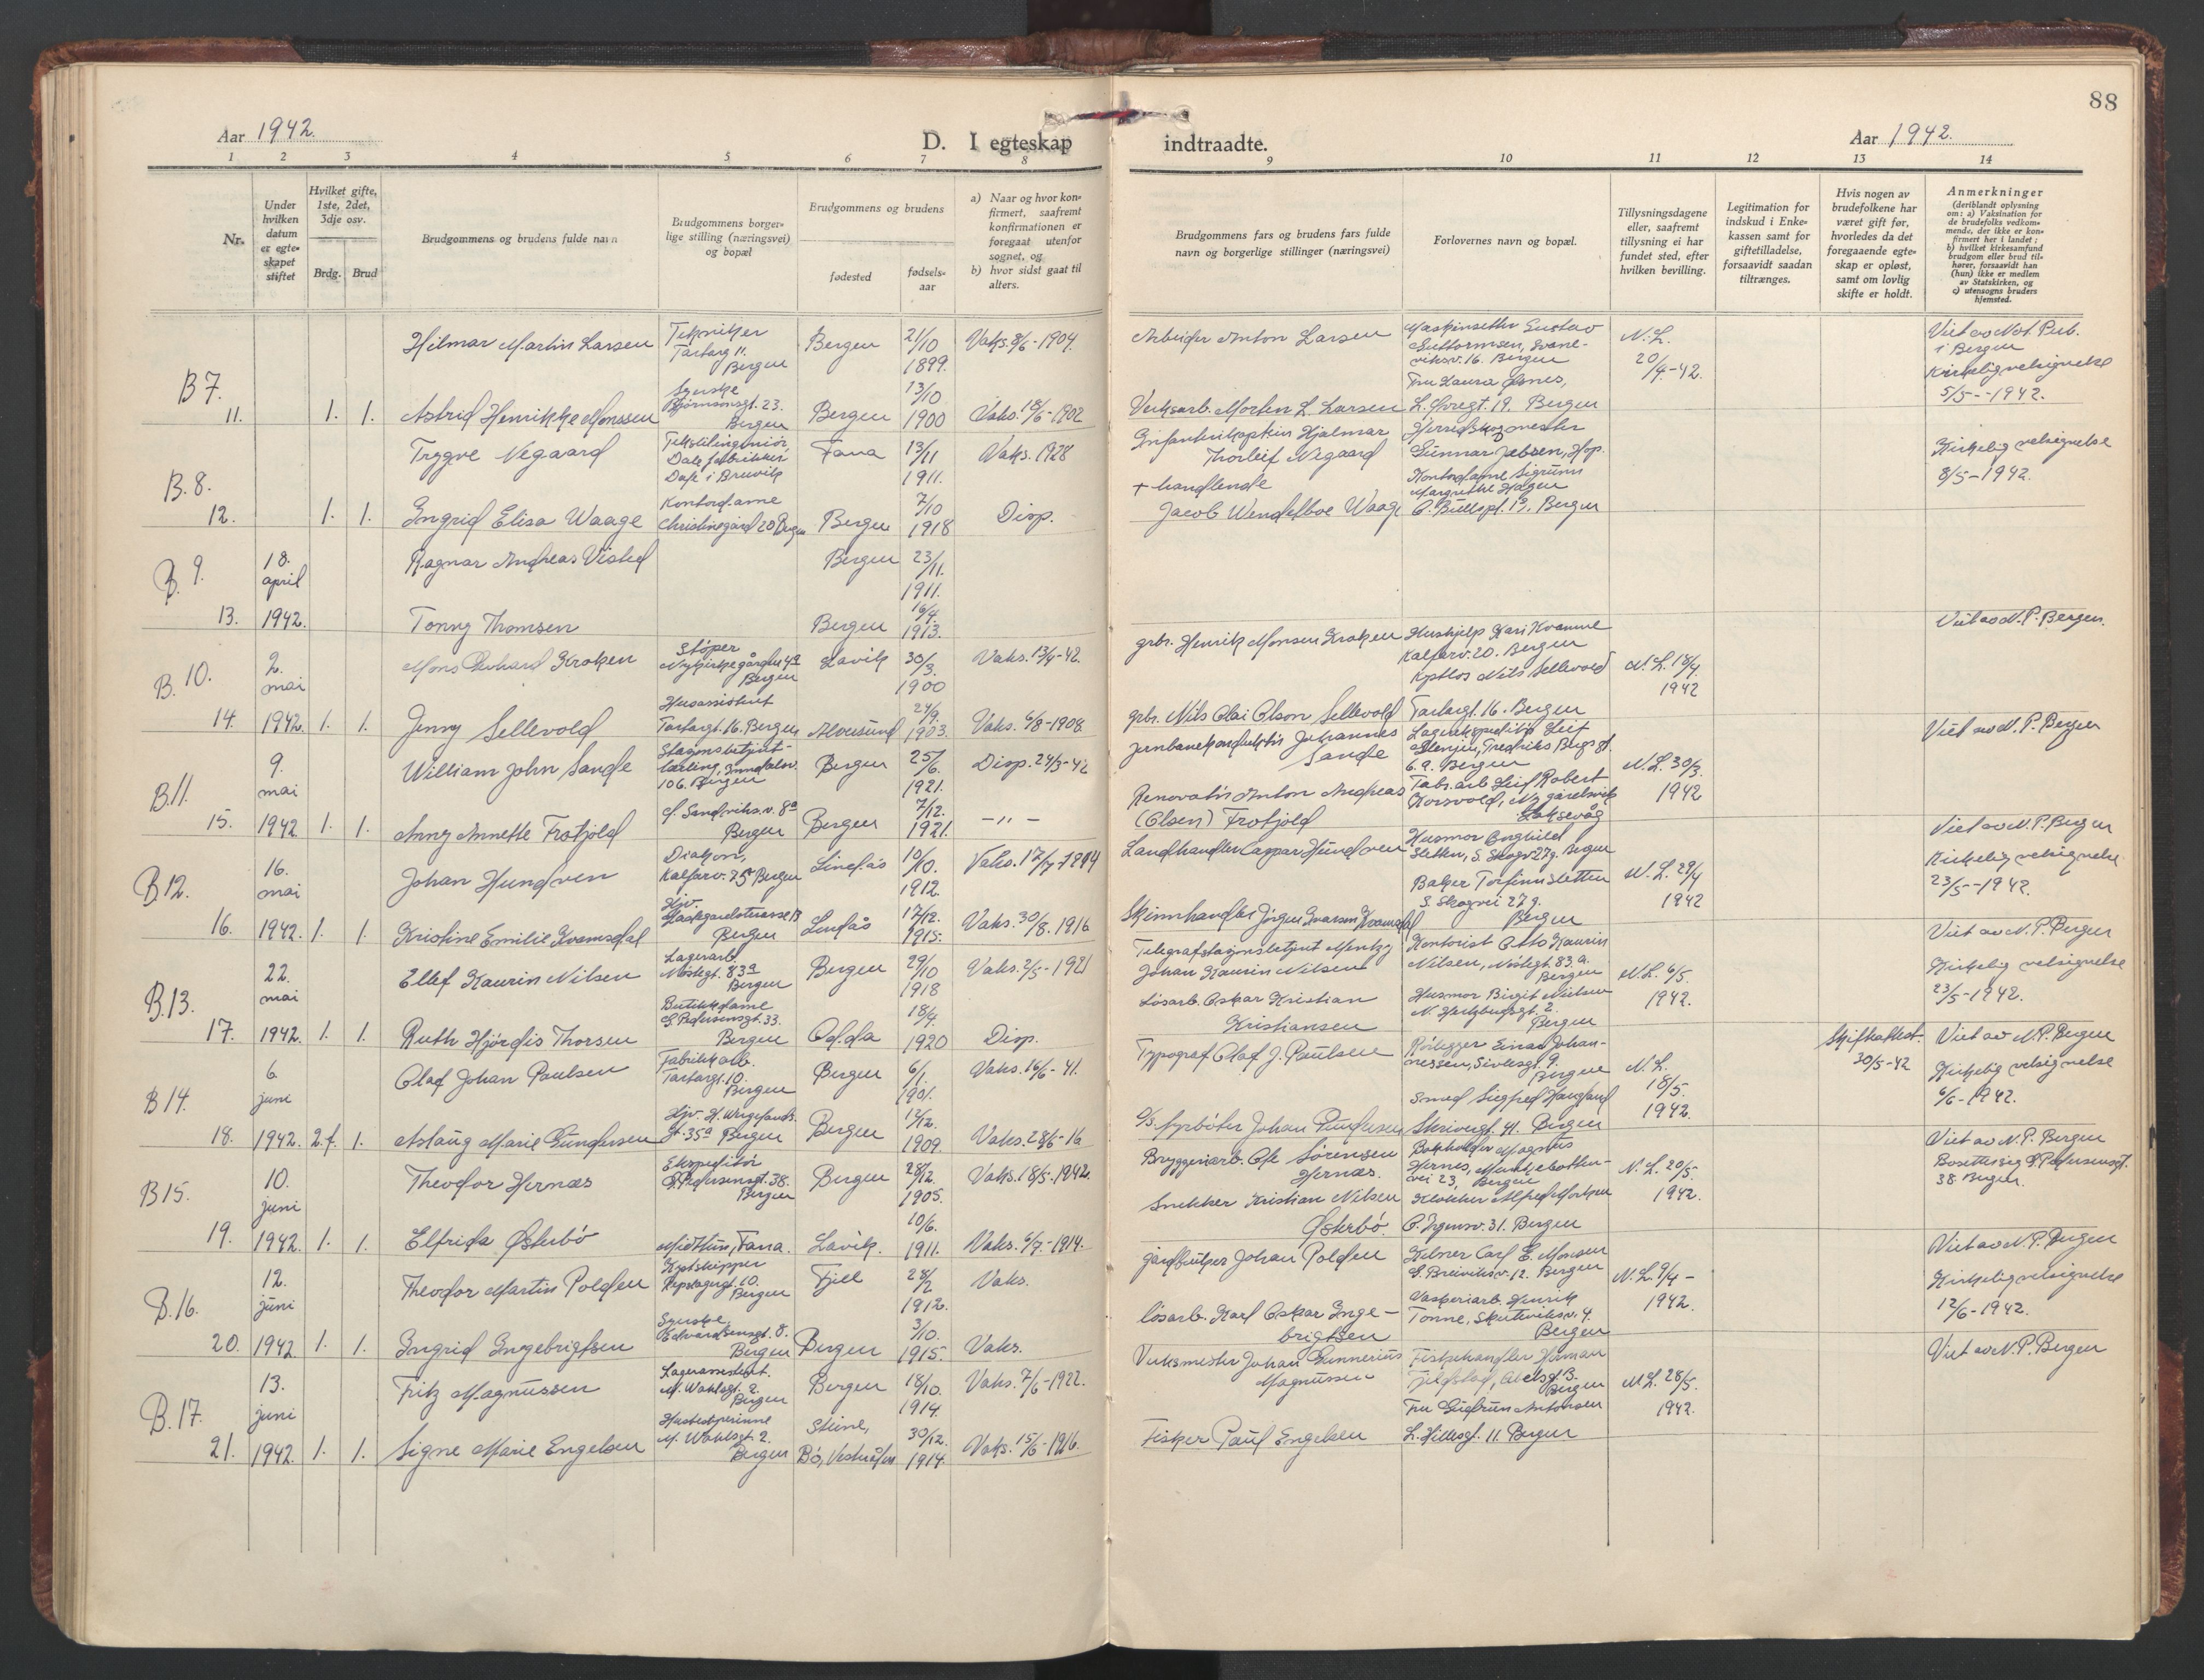 88
Aar 1942.
D. I egteskap
indtraadte.
Aar 1942.
1 2 3 4 5 6 7 8 9 10 11 12 13 14
Nr.
Under hvilken datum er egteskapet stiftet
Hvilket gifte, 1ste, 2det, 3dje osv.
Brdg. Brud
Brudgommens og brudens fulde navn
Brudgommens borgerlige stilling (næringsvei) og bopæl
Brudgommens og brudens
fødested
fødselsaar
a) Naar og hvor konfirmert, saafremt konfirmationen er foregaat utenfor sognet, og
b) hvor sidst gaat til alters.
Brudgommens fars og brudens fars fulde navn og borgerlige stillinger (næringsvei)
Forlovernes navn og bopæl.
Tillysningsdagene eller, saafremt tillysning ei har fundet sted, efter hvilken bevilling.
Legitimation for indskud i Enkekassen samt for giftetilladelse, forsaavidt saadan tiltrænges.
Hvis nogen av brudefolkene har været gift før, hvorledes da det foregaaende egteskap er opløst, samt om lovlig skifte er holdt.
Anmerkninger
(deriblandt oplysning om: a) Vaksination for de brudefolks vedkommende, der ikke er konfirmert her i landet; b) hvilket kirkesamfund brudgom eller brud tilhører, forsaavidt han (hun) ikke er medlem av Statskirken, og c) utensogns bruders hjemsted.
B 7.
11. 1. 1.
Hilmar Martin Larsen
Tekniker
Tartarg 11.
Bergen
Bergen
21/10
1899.
Vaks. 8/6 - 1904.
Arbeider Anton Larsen
Gustav
Guttormsen, Svaneviksv. 16. Bergen
N.L.
20/4 - 42.
Viet av Not. Pub.
i Bergen
Kirkelig velsignelse
5/5 - 1942.
Astrid Henrikke Monssen
Syerske
Bjørnsonsgt. 23.
Bergen
Bergen
13/10
1900
Vaks. 18/6 - 1902
Verksarb. Morten L. Larsen
Fru Laura
19. Bergen
B. 8.
12. 1. 1.
Trygve Negaard
Tekstilingeniør
Dale fabrikker
Dale i Bruvik
Fana
13/11
1911.
Vaks. 1928
Infanterikaptein Hjalmar
Thorleif Negaard
Gunnar Jebsen, Hop.
Kirkelig velsignelse
8/5 - 1942.
Ingrid Elisa Waage
Kontordame
Christinegård 20 Bergen
Bergen
7/10
1918
Disp.
+ handlende
Jacob Wendelboe Waage
Kontordame Sigrunn
Margrethe Hagen
O. Bullspl. 1 Bergen
B. 9.
13.
18.
april
1942.
Ragnar Andreas Visted
Bergen
23/11.
1911.
Tonny Thomsen
Bergen
16/4.
1913.
Viet av N. P. Bergen.
B. 10.
14.
2.
mai
1942. 1. 1.
Mons Kroken
Støper
Nykirkegården 4a
Bergen
Lavik
30/3.
1900
Vaks. 13/4 - 42.
grbr. Henrik Monsen Kroken
Hushjelp Kari Kvamme
Kalfarv. 20. Bergen
N.L. 18/4
1942
Jenny Sellevold
Husassistent
Tartargt. 16. Bergen
Alversund
24/9.
1903.
Vaks. 6/8 - 1908.
grbr. Nils Olai Olson Sellevold
Nils Sellevold
Tartargt. 16. Bergen
Viet av N. P. Bergen
B. 11.
15.
9.
mai
1942 1. 1.
William John Sande
Stasjonsbetjentlærling,
106. Bergen
Bergen
25/6.
1921.
Disp. 24/3 - 42
Jernbanekonduktør Johannes
Sande
Leif
Stenjen, Fredriks Bugsgt.
6.a. Bergen
N.L. 30/3.
1942
Anny Annette Frotjold
Ø. Sandviksv. 8a
Bergen
Bergen
7/12.
1921.
- " -
Renovatør Anton Andreas
(Olsen) Frotjold
Fabr.arb. Leif Robert
Korsvold,
Laksevåg
Viet av N. P. Bergen
Kirkelig velsignelse
23/5 - 1942.
B 12.
16.
16.
mai
1942. 1. 1.
Johan Hundven
Diakon,
Kalfarv. 75 Bergen
Lindås
10/10.
1912.
Vaks. 17/7 - 1914
Landhandler Caspar Hundven
Husmor Borghild
Sletten, S. Skogv. 27g. Bergen
N.L. 29/4
1942
Kristine Emilie Kvamsdal
Hjv.
Bergen
Lindås
17/12.
1915.
Vaks. 30/8. 1916
Skinnhandler Jørgen Kvamsdal
Baker Torfinn Sletten
S. Skogvei 27g.
Bergen
Viet av N. P. Bergen
Kirkelig velsignelse
23/5 - 1942.
B. 13.
17.
22.
mai
1942. 1. 1.
Ellef Kaurin Nilsen
Lagerarb.
Nøstegt. 83a
Bergen
Bergen
29/10
1918
Vaks. 2/5 - 1921
Telegrafstasjonsbetjent Mentz
Johan Kaurin Nilsen
Kontorist Otto Kaurin
Nilsen, Nøstegt. 83.a.
Bergen
N.L. 6/5.
1942.
Ruth Hjördis Thorsen
Butikkdame
G. Pedersensgt. 33.
Bergen
Odda
18/4.
1920
Disp.
Løsarb. Oskar Kristian
Kristiansen
Husmor Birgit Nielsen
N. Hertzbergsgt. 2.
Bergen
Viet av N. P. Bergen
Kirkelig velsignelse
6/6 - 1942.
B 14.
18.
6.
juni
1942. 2.f. 1.
Olaf Johan Paulsen
Fabrikkarb.
Tartargt. 10.
Bergen
Bergen
6/1.
1901.
Vaks. 16/6 - 41.
Typograf Olaf J. Paulsen
Rørlegger Einar Johannessen, Sivlesgt. 9.
Bergen
N.L.
18/5.
1942.
Skifteattest.
30/5 - 42
Aslaug Marie Gundersen
Hjv. H. Wergelandsgt. 35a Bergen
Bergen
12/12.
1909.
Vaks. 28/6 - 16
D/S fyrbøter Johan Gundersen
Smed Sigfred Haugland
Skivergt. 41. Bergen
Viet av N. P. Bergen
Bosetter sig G. Pedersensgt.
38 Bergen.
B 15.
19.
10.
juni
1942. 1. 1.
Theodor Hernæs
Ekspeditør
G. Pedersensgt. 38.
Bergen
Bergen
28/12.
1905.
Vaks. 18/5. 1942.
Bryggeriarb. Ole Sørensen
Hernæs.
Bokholder Magnus
Hernes, Munkebottenvei 23, Bergen
N.L. 20/5.
1942.
Elfrida Østerbø
Midthun, Fana.
Lavik.
10/6.
1911.
Vaks. 6/7 - 1914.
Snekker Kristian Nilsen
Østerbø
Klokker Alfred
31. Bergen
Viet av N. P. Bergen
Kirkelig velsignelse
12/6 - 1942.
B. 16.
20.
12.
juni
1942 1. 1.
Theodor Martin Polden
Kystskipper
Repslagergt. 10.
Bergen
Fjell
28/2
1912.
Vaks.
gårdbruker Johan Polden
Kelner Carl E. Monsen
12. Bergen
N.L. 9/4 -
1942.
Ingrid Ingebrigtsen
Syerske,
Edvardsensgt. 8.
Bergen
Bergen
3/10.
1915.
Vaks.
løsarb. Karl Oskar Ingebrigtsen
Vaskeriarb. Henrik
Tonne, Skuteviksv. 4.
Bergen
Viet av N. P. Bergen
B. 17.
21.
13.
juni
1942. 1. 1.
Fritz Magnussen
Lagerassistent.
M. Wahlsgt. 2.
Bergen
Bergen
18/10.
1914.
Vaks. 7/6 - 1922.
Verksmester Johan Gunnerius
Magnussen
Fiskehandler Herman
Bergen
N.L. 28/5.
1942.
Signe Marie Engelsen
M. Wahlsgt. 2.
Bergen
Steine,
Bø, Vesterålen
30/12.
1914.
Vaks. 15/6 - 1916.
Fisker Paul Engelsen
Fru Gudrun Antonsen
L. Hillesgt. 11. Bergen